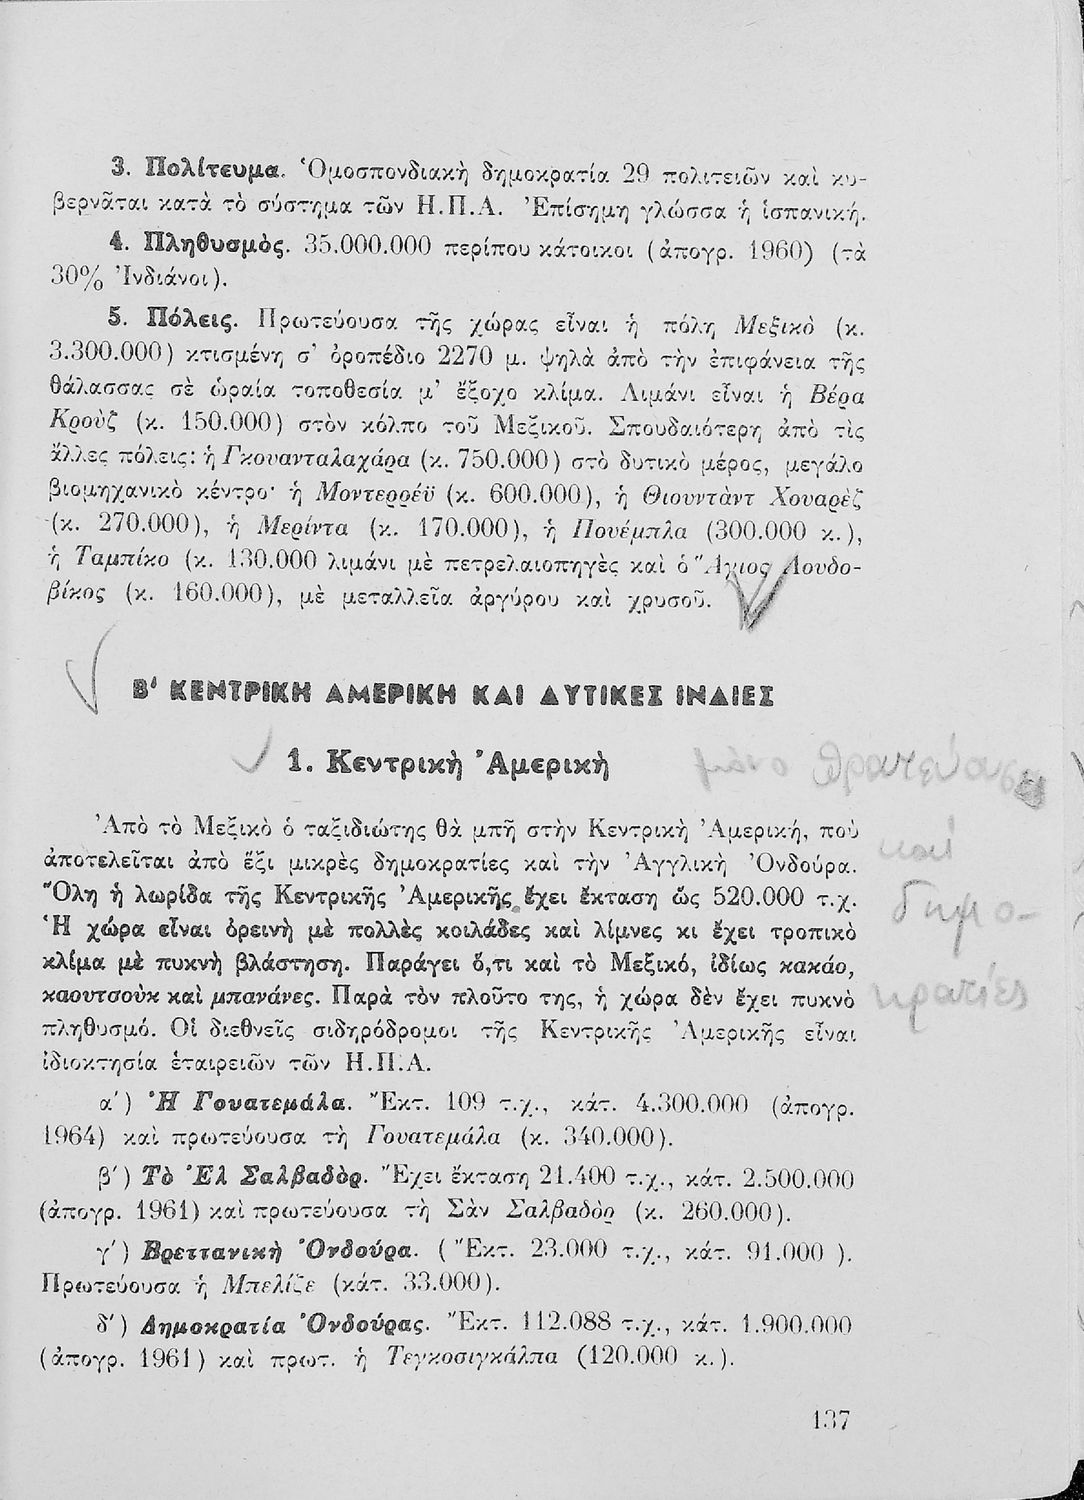 3. Πολίτευμα. Ὁμοσπονδιακὴ δημοκρατία 29 πολιτειῶν καὶ κυ-
βερνᾶται κατὰ τὸ σύστημα τῶν Η.Π.Α. Ἐπίσημη γλώσσα ἡ ἱσπανική.
4. Πληθυσμὸς. 35.000.000 περίπου κάτοικοι (ἀπογρ. 1960) (τὰ
30% Ἰνδιάνοι).
5. Πόλεις. Πρωτεύουσα τῆς χώρας εἶναι ἡ πόλη Μεξικὸ (κ.
3.300.000) κτισμένη σ' ὀροπέδιο 2270 μ. ψηλὰ ἀπὸ τὴν ἐπιφάνεια τῆς
θάλασσας σὲ ὡραία τοποθεσία μ' ἔξοχο κλίμα. Λιμάνι εἶναι ἡ Βέρα
Κροὺζ (κ. 150.000) στὸν κόλπο τοῦ Μεξικοῦ. Σπουδαιότερη ἀπὸ τὶς
ἄλλες πόλεις: ἡ Γκουανταλαχάρα (κ. 750.000) στὸ δυτικὸ μέρος, μεγάλο
βιομηχανικὸ κέντρο· ἡ Μοντερρέϋ (κ. 600.000), ἡ Θιουντὰντ Χουαρὲζ
(κ. 270.000), ἡ Μερίντα (κ. 170.000), ἡ Πουέμπλα (300.000 κ.),
ἡ Ταμπίκο (κ. 130.000 λιμάνι μὲ πετρελαιοπηγὲς καὶ ὁ Ἅγιος Λουδο-
βίκος (κ. 160.000), μὲ μεταλλεῖα ἀργύρου καὶ χρυσοῦ.
Β' ΚΕΝΤΡΙΚΗ ΑΜΕΡΙΚΗ ΚΑΙ ΔΥΤΙΚΕΣ ΙΝΔΙΕΣ
1. Κεντρικὴ Ἀμερικὴ
μόνο πρωτεύουσες
καί
δημο-
κρατίες
Ἀπὸ τὸ Μεξικὸ ὁ ταξιδιώτης θὰ μπῆ στὴν Κεντρικὴ Ἀμερική, ποὺ
ἀποτελεῖται ἀπὸ ἕξι μικρὲς δημοκρατίες καὶ τὴν Ἀγγλικὴ Ὀνδούρα.
Ὅλη ἡ λωρίδα τῆς Κεντρικῆς Ἀμερικῆς ἔχει ἔκταση ὥς 520.000 τ.χ.
Ἡ χώρα εἶναι ὀρεινὴ μὲ πολλὲς κοιλάδες καὶ λίμνες κι ἔχει τροπικὸ
κλίμα μὲ πυκνὴ βλάστηση. Παράγει ὅ,τι καὶ τὸ Μεξικό, ἰδίως κακάο,
καουτσοὺκ καὶ μπανάνες. Παρὰ τὸν πλοῦτο της, ἡ χώρα δὲν ἔχει πυκνὸ
πληθυσμό. Οἱ διεθνεῖς σιδηρόδρομοι τῆς Κεντρικῆς Ἀμερικῆς εἶναι
ἰδιοκτησία ἑταιρειῶν τῶν Η.Π.Α.
α') Ἡ Γουατεμάλα. Ἔκτ. 109 τ.χ., κάτ. 4.300.000 (ἀπογρ.
1964) καὶ πρωτεύουσα τὴ Γουατεμάλα (κ. 340.000).
β') Τὸ Ἐλ Σαλβαδὸρ. Ἔχει ἔκταση 21.400 τ.χ., κάτ. 2.500.000
(ἀπογρ. 1961) καὶ πρωτεύουσα τὴ Σὰν Σαλβαδὸρ (κ. 260.000).
γ') Βρεττανικὴ Ὀνδούρα. (Ἔκτ. 23.000 τ.χ., κάτ. 91.000 ).
Πρωτεύουσα ἡ Μπελίζε (κάτ. 33.000).
δ') Δημοκρατία Ὀνδούρας. Ἔκτ. 112.088 τ.χ., κάτ. 1.900.000
(ἀπογρ. 1961) καὶ πρωτ. ἡ Τεγκοσιγκάλπα (120.000 κ.).
137